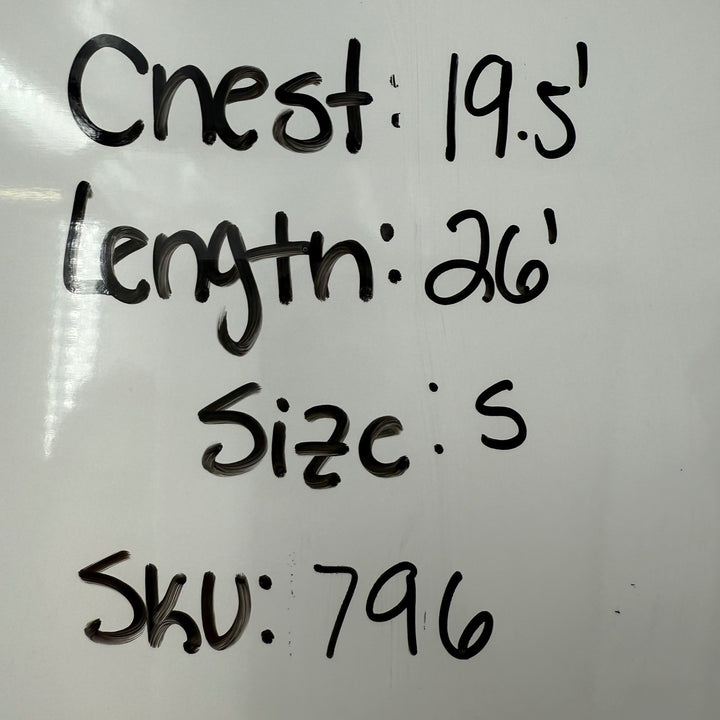 Chest: 19.5'
Length: 26'
Size: S
SKU: 796